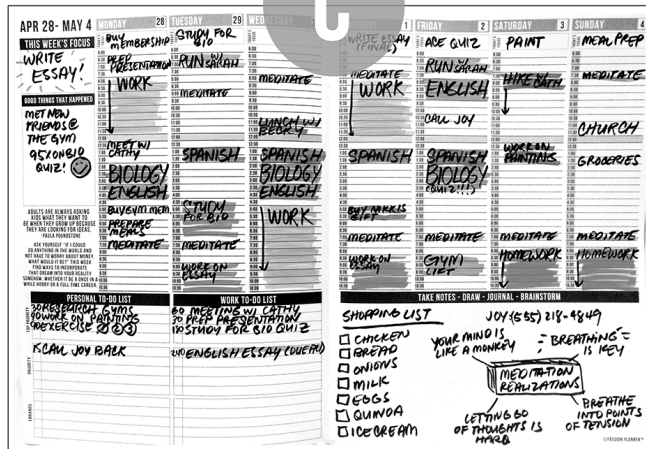 APR 28- MAY 4
THIS WEEK'S FOCUS
WRITE
ESSAY!
GOOD THINGS THAT HAPPENED
MET NEW
FRIENDS @
THE GYM
95% ON BIO
QUIZ!
ADULTS ARE ALWAYS ASKING
KIDS WHAT THEY WANT TO
BE WHEN THEY GROW UP BECAUSE
THEY ARE LOOKING FOR IDEAS.
- PAULA POUNDSTONE
ASK YOURSELF "IF I COULD
DO ANYTHING IN THE WORLD AND
NOT HAVE TO WORRY ABOUT MONEY,
WHAT WOULD IT BE?" THIS WEEK
FIND WAYS TO INCORPORATE
THAT DREAM INTO YOUR REALITY
SOMEHOW. WHETHER IT BE A ONCE IN A
WHILE HOBBY OR A FULL TIME CAREER.
MONDAY 28
BUY
MEMBERSHIP
PREP
PRESENTATION
WORK
MEET W/
CATHY
BIOLOGY
ENGLISH
BUY GYM MEM
PREPARE
MEALS
MEDITATE
TUESDAY 29
STUDY FOR
BIO
RUN W/
SARAH
MEDITATE
SPANISH
STUDY
FOR BIO
MEDITATE
WORK ON
ESSAY
MEDITATE
LUNCH W/
SPANISH
BIOLOGY
ENGLISH
WORK
1
WRITE ESSAY
(FINAL)
MEDITATE
WORK
SPANISH
BUY NIKKI'S
GIFT
MEDITATE
WORK ON
ESSAY
FRIDAY 2
ACE QUIZ
RUN W/
SARAH
ENGLISH
CALL JOY
SPANISH
BIOLOGY
(QUIZ!!!)
MEDITATE
GYM
LIFT
SATURDAY 3
PAINT
HIKE W/
CATH
WORK ON
PAINTINGS
MEDITATE
HOMEWORK
SUNDAY 4
MEAL PREP
MEDITATE
CHURCH
GROCERIES
MEDITATE
HOMEWORK
PERSONAL TO-DO LIST
TOP PRIORITY
30 RESEARCH GYMS
90 WORK ON PAINTINGS
90 EXERCISE 1 2 3
PRIORITY
15 CALL JOY BACK
ERRANDS
WORK TO-DO LIST
60 MEETING W/ CATHY
30 PREP PRESENTATION
120 STUDY FOR BIO QUIZ
ENGLISH ESSAY (DUE FRI)
TAKE NOTES - DRAW - JOURNAL - BRAINSTORM
SHOPPING LIST
CHICKEN
BREAD
ONIONS
MILK
EGGS
QUINOA
ICE CREAM
JOY: (555) 218-4849
YOUR MIND IS
LIKE A MONKEY
BREATHING
IS KEY
MEDITATION
REALIZATIONS
LETTING GO
OF THOUGHTS IS
HARD
BREATHE
INTO POINTS
OF TENSION
©PASSION PLANNER™